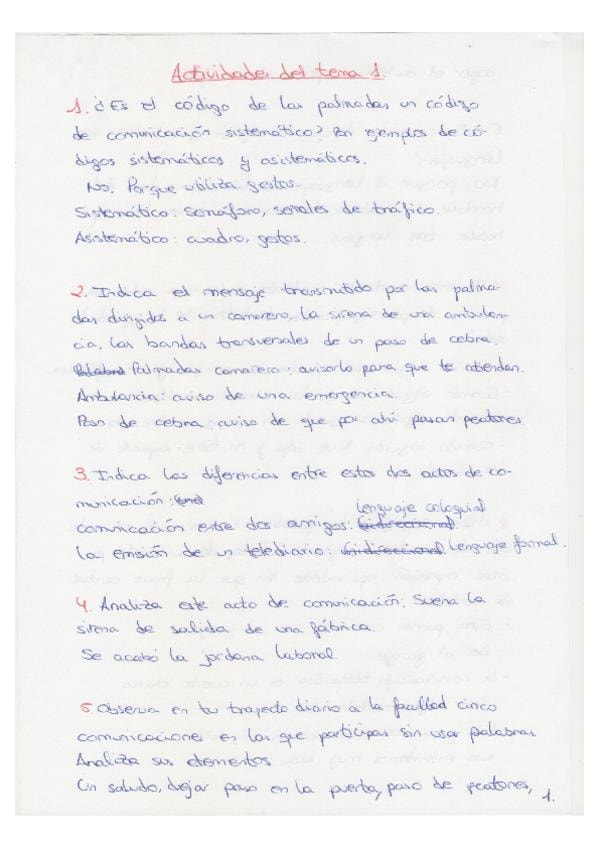 Actividades del tema 1.
1. ¿Es el código de las palmadas un código
de comunicación sistemático? Pon ejemplos de có-
digos sistemáticos y asistemáticos.
No. Porque utiliza gestos.
Sistemático: Semáforo, señales de tráfico.
Asistemático: cuadro, gestos.
2. Indica el mensaje transmitido por las palma-
das dirigidas a un camarero, la sirena de una ambulan-
cia, las bandas transversales de un paso de cebra.
Palabra Palmadas camarero: avisarlo para que te atiendan.
Ambulancia: aviso de una emergencia.
Paso de cebra: aviso de que por ahí pasan peatones
3. Indica las diferencias entre estos dos actos de co-
municación: una
Lenguaje coloquial
comunicación entre dos amigos: bidireccional.
la emisión de un telediario: unidireccional. Lenguaje formal.
4. Analiza este acto de comunicación: Suena la
sirena de salida de una fábrica.
Se acabó la jordana laboral.
5. Observa en tu trayecto diario a la facultad cinco
comunicaciones en las que participas sin usar palabras
Analiza sus elementos.
Un saludo, dejar paso en la puerta, paso de peatones,
1.